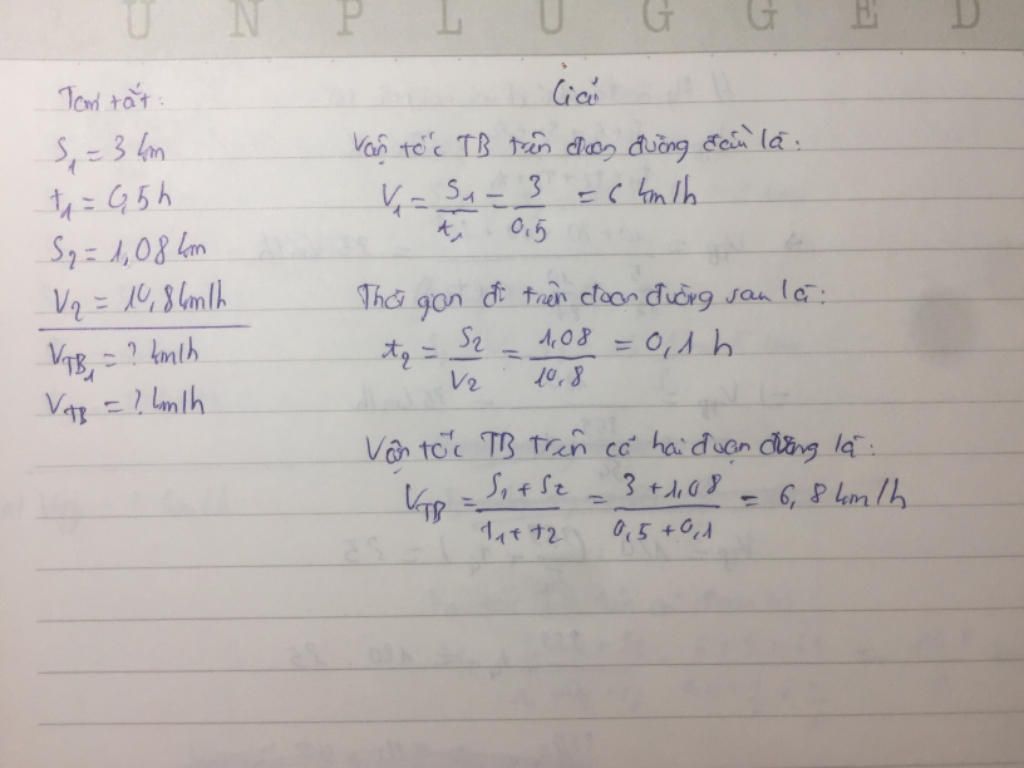 UNPLUGGED
Tóm tắt:
S₁ = 3 km
t₁ = 0,5 h
S₂ = 1,08 km
V₂ = 10,8 km/h
V_TB₁ = ? km/h
V_TB = ? km/h
Giải
Vận tốc TB trên đoạn đường đầu là:
V₁ = S₁/t₁ = 3/0,5 = 6 km/h
Thời gian đi trên đoạn đường sau là:
t₂ = S₂/V₂ = 1,08/10,8 = 0,1 h
Vận tốc TB trên cả hai đoạn đường là:
V_TB = (S₁ + S₂)/(t₁ + t₂) = (3 + 1,08)/(0,5 + 0,1) = 6,8 km/h